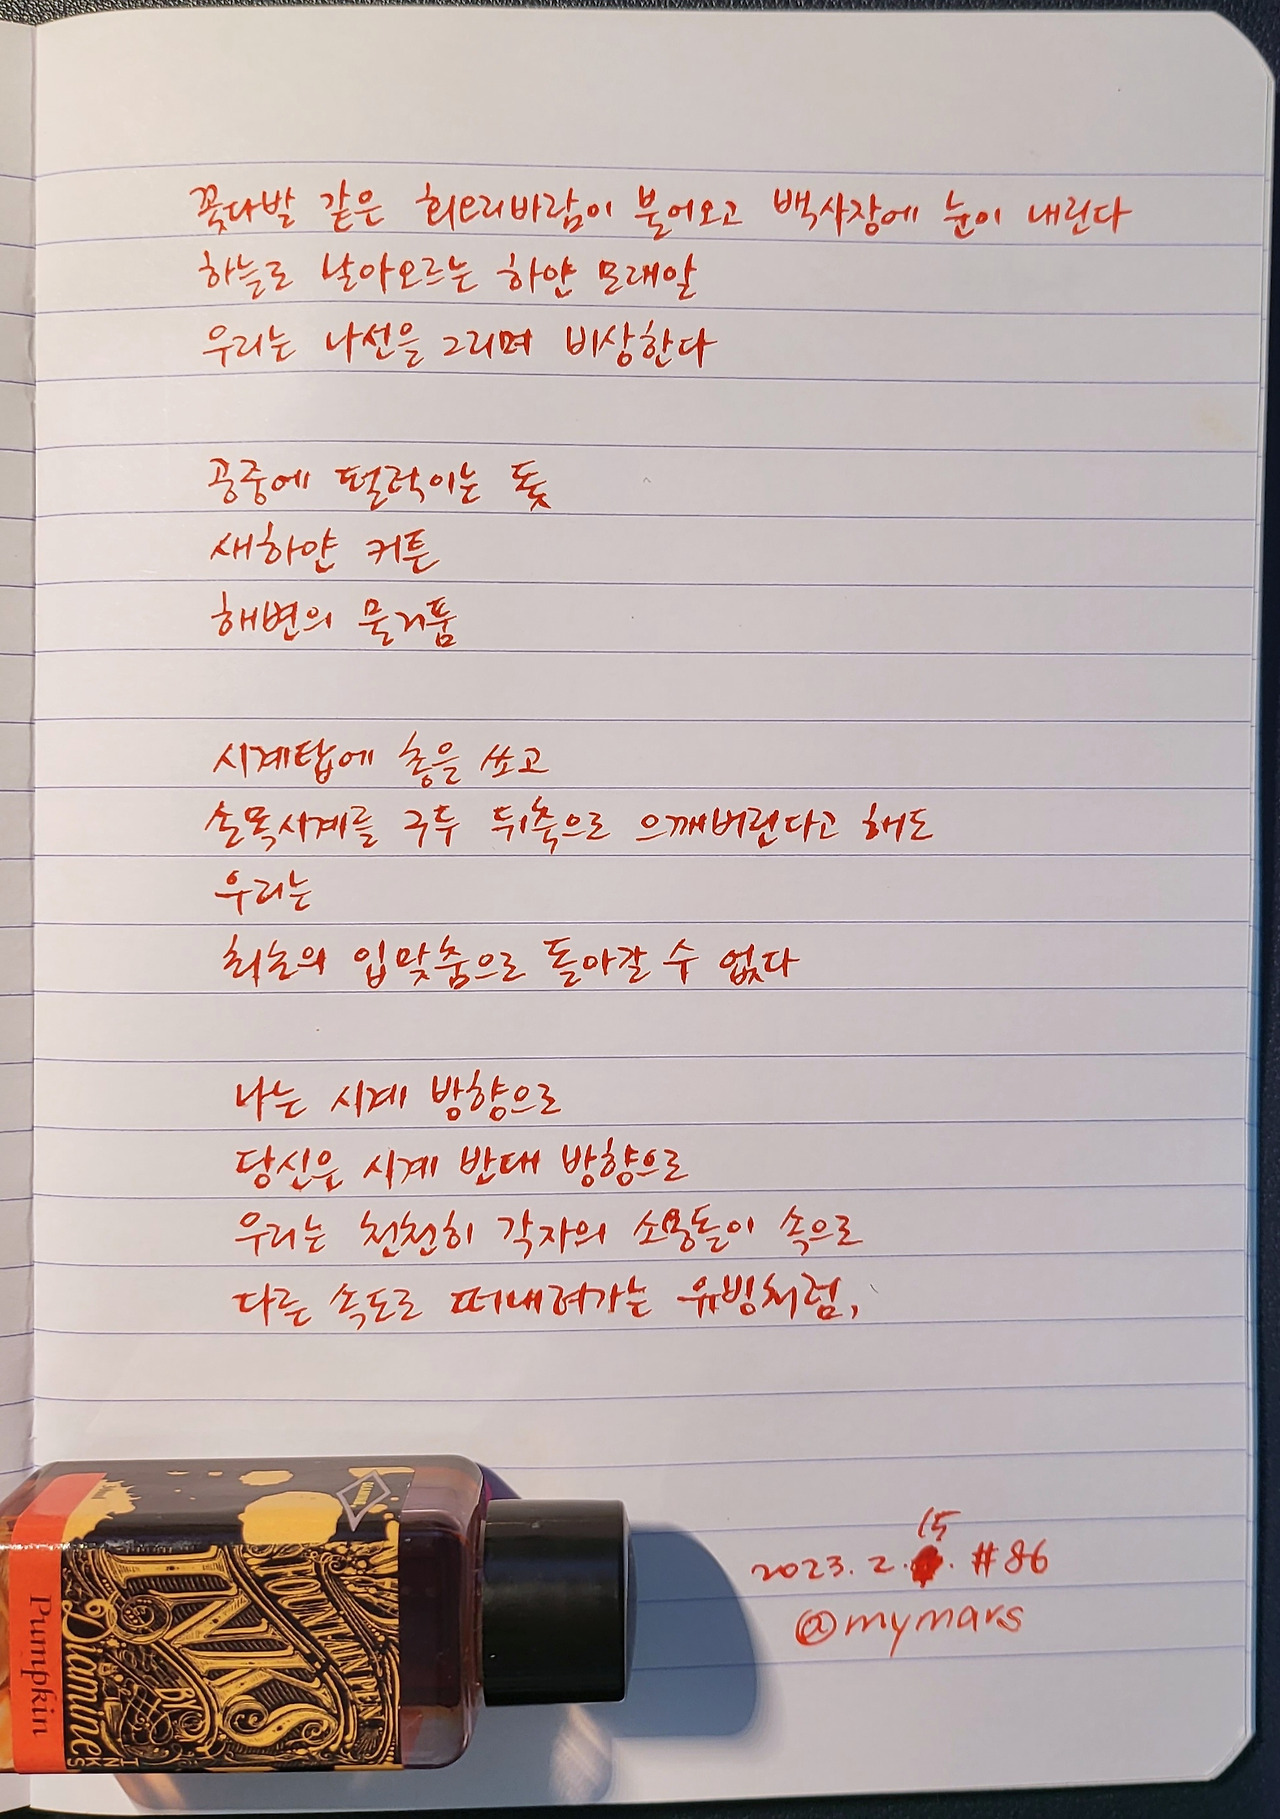 꽃다발 같은 회오리바람이 불어오고 백사장에 눈이 내린다
하늘로 날아오르는 하얀 모래알
우리는 나선을 그리며 비상한다
공중에 펄럭이는 돛
새하얀 커튼
해변의 물거품
시계탑에 총을 쏘고
손목시계를 구두 뒤축으로 으깨버린다고 해도
우리는
최초의 입맞춤으로 돌아갈 수 없다
나는 시계 방향으로
당신은 시계 반대 방향으로
우리는 천천히 각자의 소용돌이 속으로
다른 속도로 떠내려가는 유빙처럼,
15
2023. 2. . #86
@mymars
FOUNTAIN PEN
INKS
BY
Diamine
INKS
Pumpkin